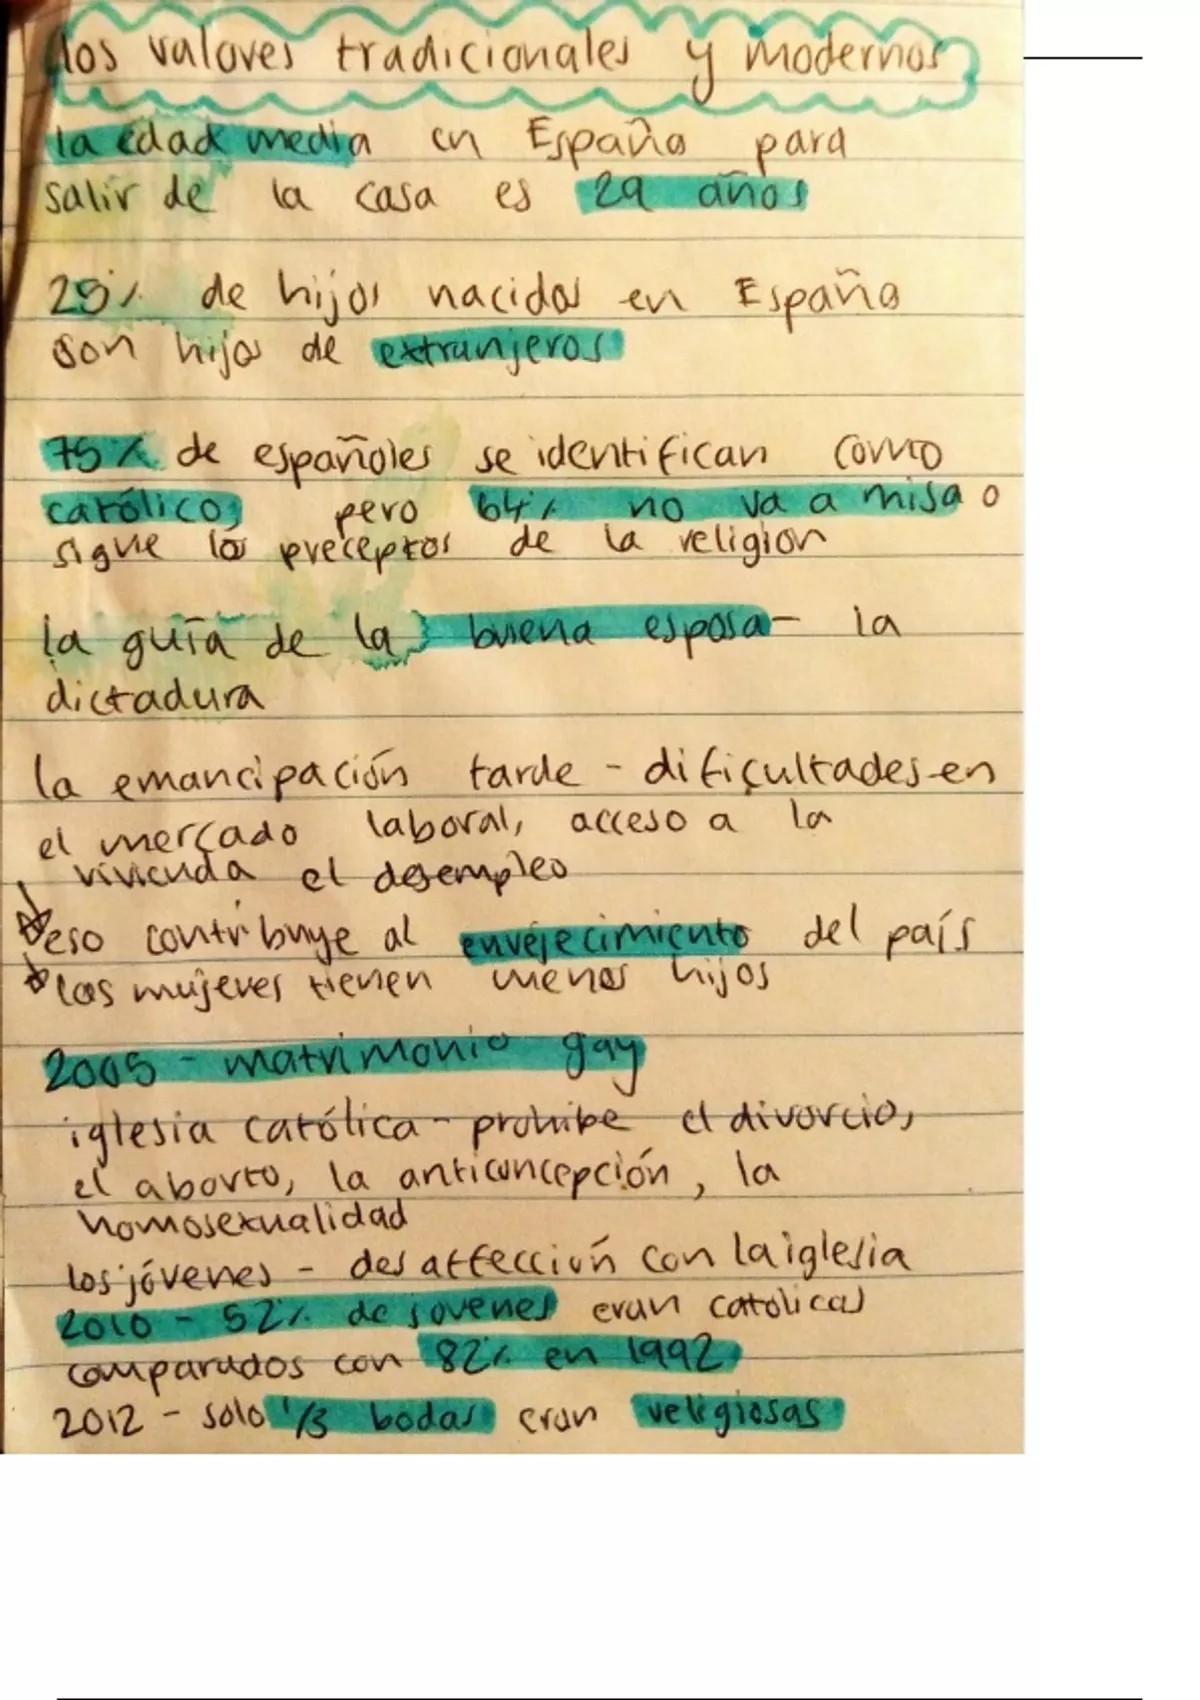 los valores tradicionales y modernos
la edad media en España para
salir de la casa es 29 años
25% de hijos nacidos en España
son hijos de extranjeros
75% de españoles se identifican como
católico, pero 64% no va a misa o
sigue los preceptos de la religion
la guía de la buena esposa - la
dictadura
la emancipación tarde - dificultades en
el mercado laboral, acceso a la
vivienda el desempleo
eso contribuye al envejecimiento del país
las mujeres tienen menos hijos
2005 - matrimonio gay
iglesia católica - prohibe el divorcio,
el aborto, la anticoncepción, la
homosexualidad
los jóvenes - desaffección con la iglesia
2010 - 52% de jovenes eran catolicas
comparados con 82% en 1992
2012 - solo 1/3 bodas eran religiosas